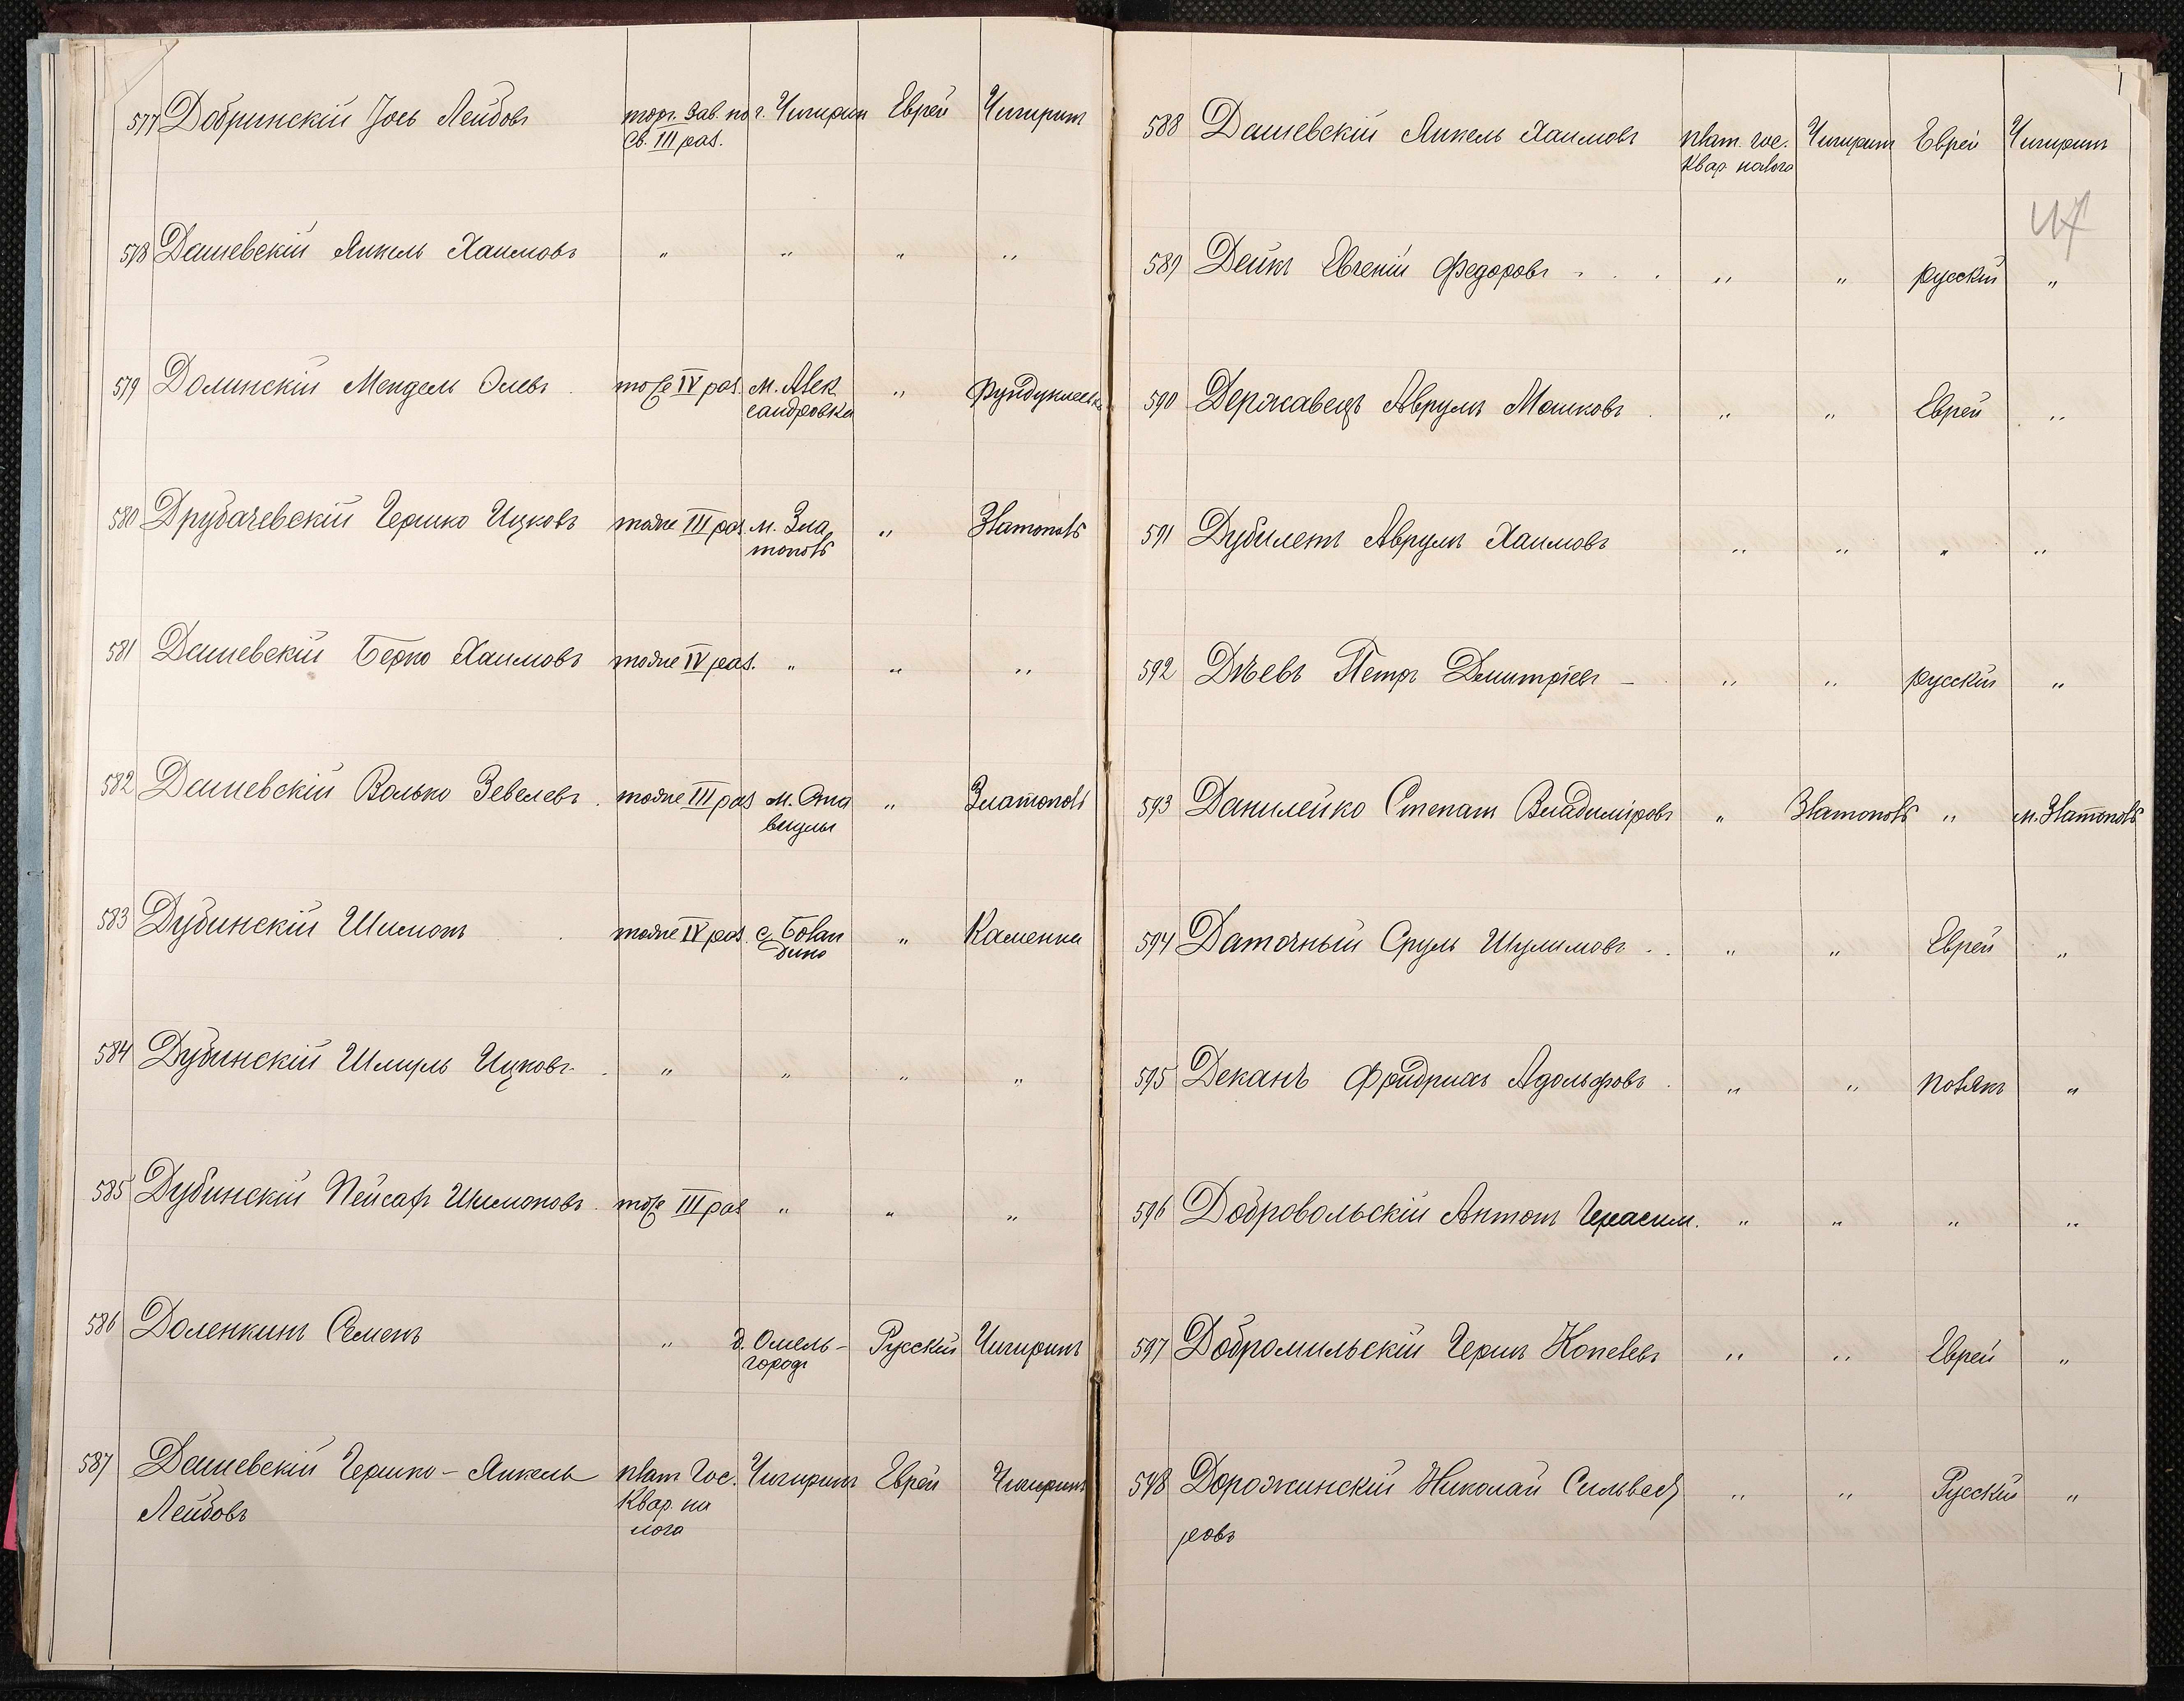 577 Добринскій Іось Лейбовъ торг. зав. по г. Чигирин Еврей Чигиринъ
св. III раз.
578 Дашевскій Янкель Хаимовъ " " " "
579 Долинскій Мендель Олевъ тоже IV раз. м. Алек " Фундуклеевка
сандровка
580 Друбачевскій Гершко Ицковъ тоже III раз. м. Зла " Златополь
тополь
581 Дашевскій Берко Хаимовъ тоже IV раз. " " "
582 Дашевскій Волько Зевелевъ тоже III раз м. Ста " Златополь
вицы
583 Дубинскій Шимонъ тоже IV раз. с. Болан " Каменка
дино
584 Дубинскій Шмуль Ицковъ " " " "
585 Дубинскій Пейсахъ Шимоновъ тоже III раз " " "
586 Доленкинъ Семенъ " д. Омель- Русскій Чигиринъ
городъ
587 Дашевскій Гершко-Янкель плат. Гос. Чигиринъ Еврей Чигиринъ
Лейбовъ Квар. на
лога
588 Дашевскій Янкель Хаимовъ плат. гос. Чигиринъ Еврей Чигиринъ
Квар налога
47
589 Дейкъ Евгеній Федоровъ " " русскій "
590 Державецъ Аврумъ Мошковъ " " Еврей "
591 Дубилетъ Аврумъ Хаимовъ " " " "
592 Дѣевъ Петръ Дмитріевъ - " " русскій "
593 Данилейко Степанъ Владиміровъ " Златополь " м. Златополь
594 Даточный Сруль Шулимовъ " " Еврей "
595 Деканъ Фридрихъ Адольфовъ " " полякъ "
596 Добровольскій Антонъ Герасим. " " " "
597 Добромильскій Герш Копелевъ " " Еврей "
598 Дорожинскій Николай Сильвест " " Русскій "
ровъ